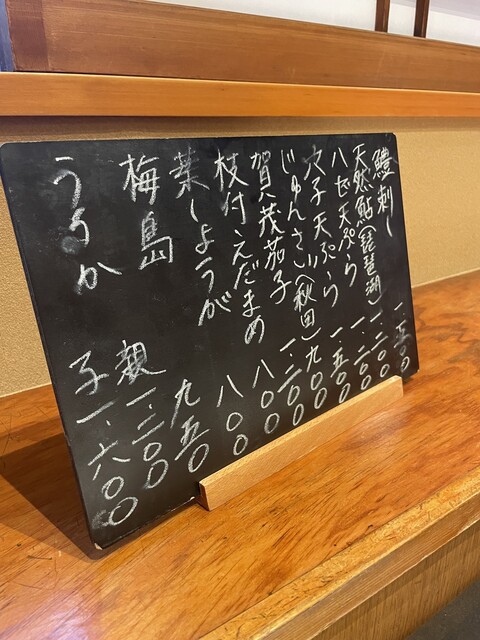 鱧刺し 一.五〇〇
天然鮎(琵琶湖) 一.二〇〇
ハゼ天ぷら 一.二〇〇
穴子天ぷら 一.五〇〇
じゅんさい(秋田) 九〇〇
賀茂茄子 一.二〇〇
枝付えだまめ 八〇〇
葉しょうが 八〇〇
梅島 九五〇
うるか 親 一.三〇〇
子 一.六〇〇